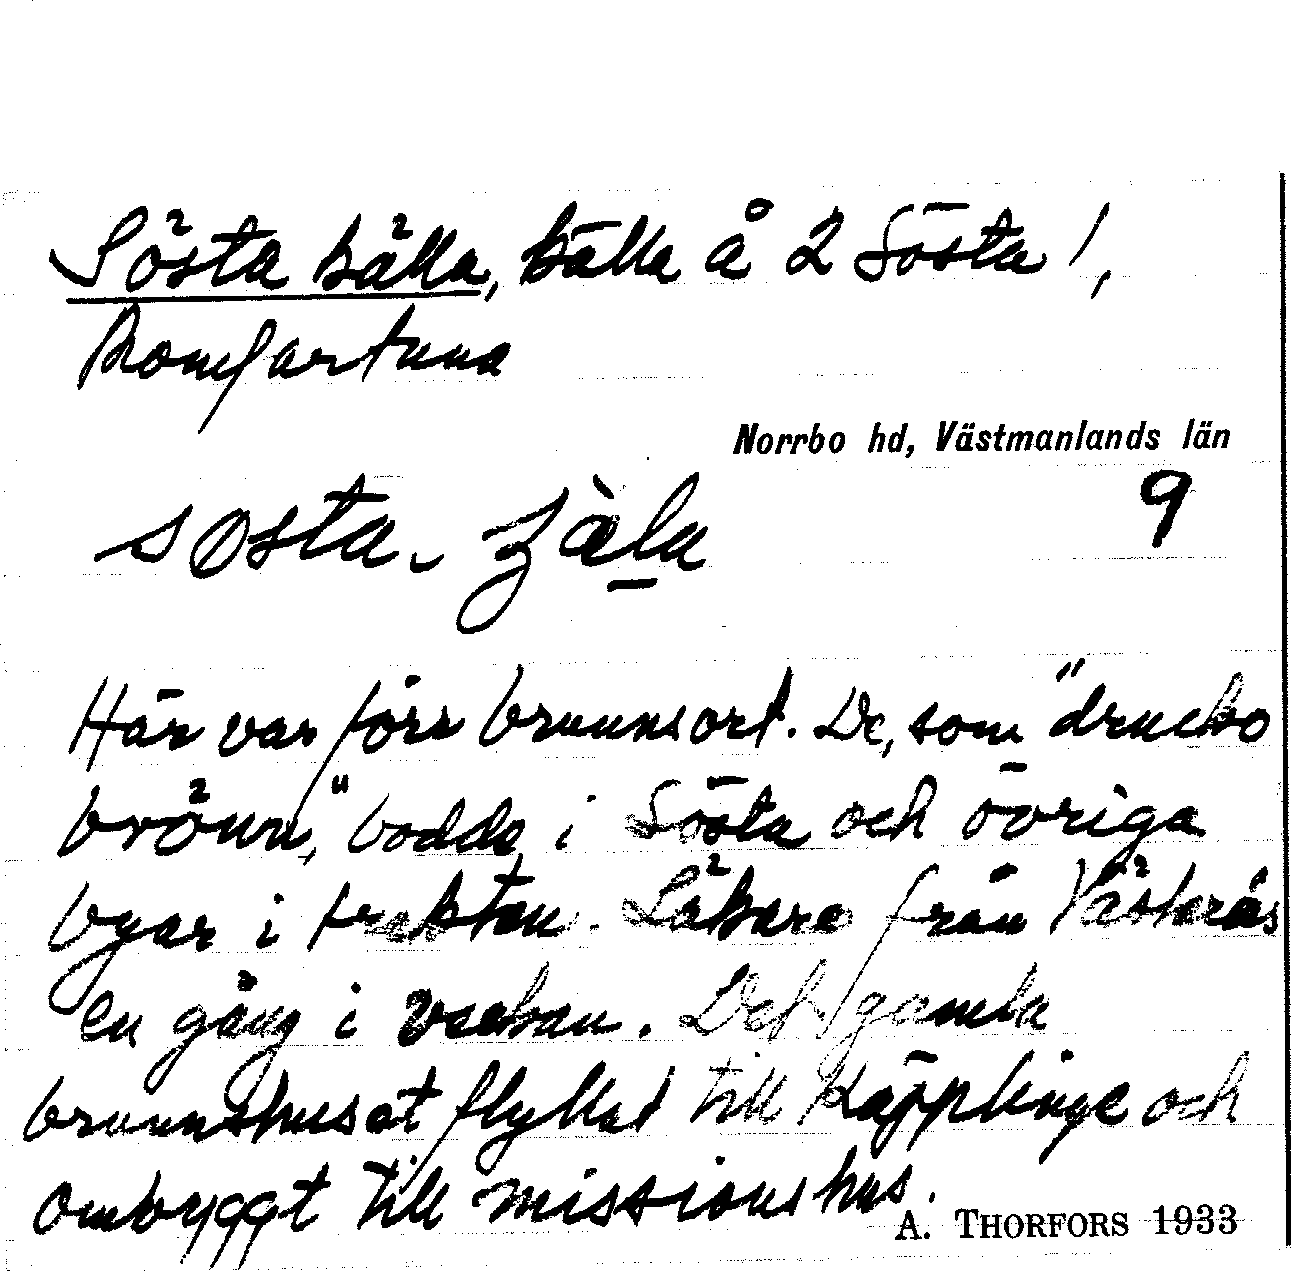 Sösta källa, källa å 2 Sösta 1,
Romfartuna
Norrbo hd, Västmanlands län
9
Här var förr brunnsort. De, som "drucko
brönn," bodde i Sösta och övriga
byar i trakten. Läkare från Västerås
en gång i veckan. Det gamla
brunnshuset flyttat till Käpplinge och
ombyggt till missionshus.
A. THORFORS 1933